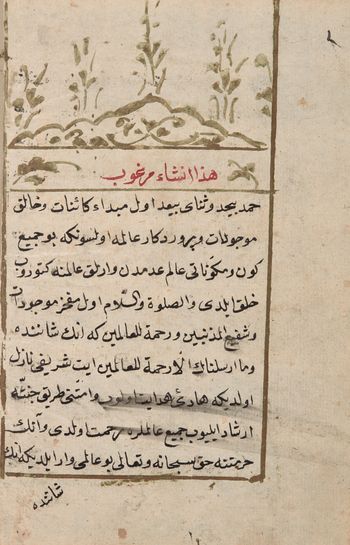 هذا انشاء مرغوب
حمد بیحد وثنای بیعد اول مبداء کائنات وخالق
موجودات وپروردکار عالمه اولسونکه بو جمیع
کون ومکوناتی عالم عدمدن وارلق عالمنه کتوروب
خلق ایلدی والصلوة والسلام اول مفخر موجودات
وشفیع المذنبین ورحمة للعالمین که انك شاننده
وما ارسلناك الا رحمة للعالمین ایت شریفی نازل
اولدیکه هادئ هدایت اولوب وامتنی طریق جنته
ارشاد ایلیوب جمیع عالملره رحمت اولدی وآنك
حرمتنه حق سبحانه وتعالی بو عالمی وار ایلدیکه انك
شاننده